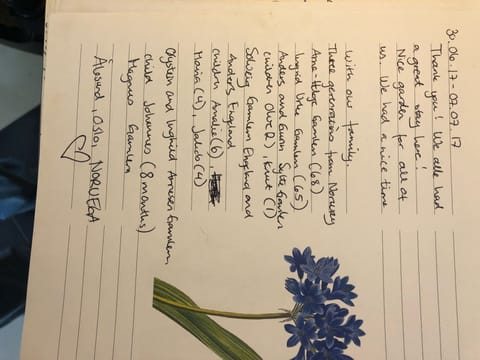 30.06.17-07.07.17
Thank you! We all had
a great stay here!
Nice garden for all of
us. We had a nice time
with our family.
Three generations from Norway
Arne-Helge Gamlem (68)
Ingrid Gamlem (65)
Anders and Guro Sylte Gamlem
children Oliver (2), Knut (1)
Solveig Gamlem England and
Anders England
children Amalia (6),
Maria (4), Jakob (4)
Øystein and Ingrid Arnesen Gamlem
child Johannes (8 months)
Magnus Gamlem
Ålesund, Oslo, NORUEGA